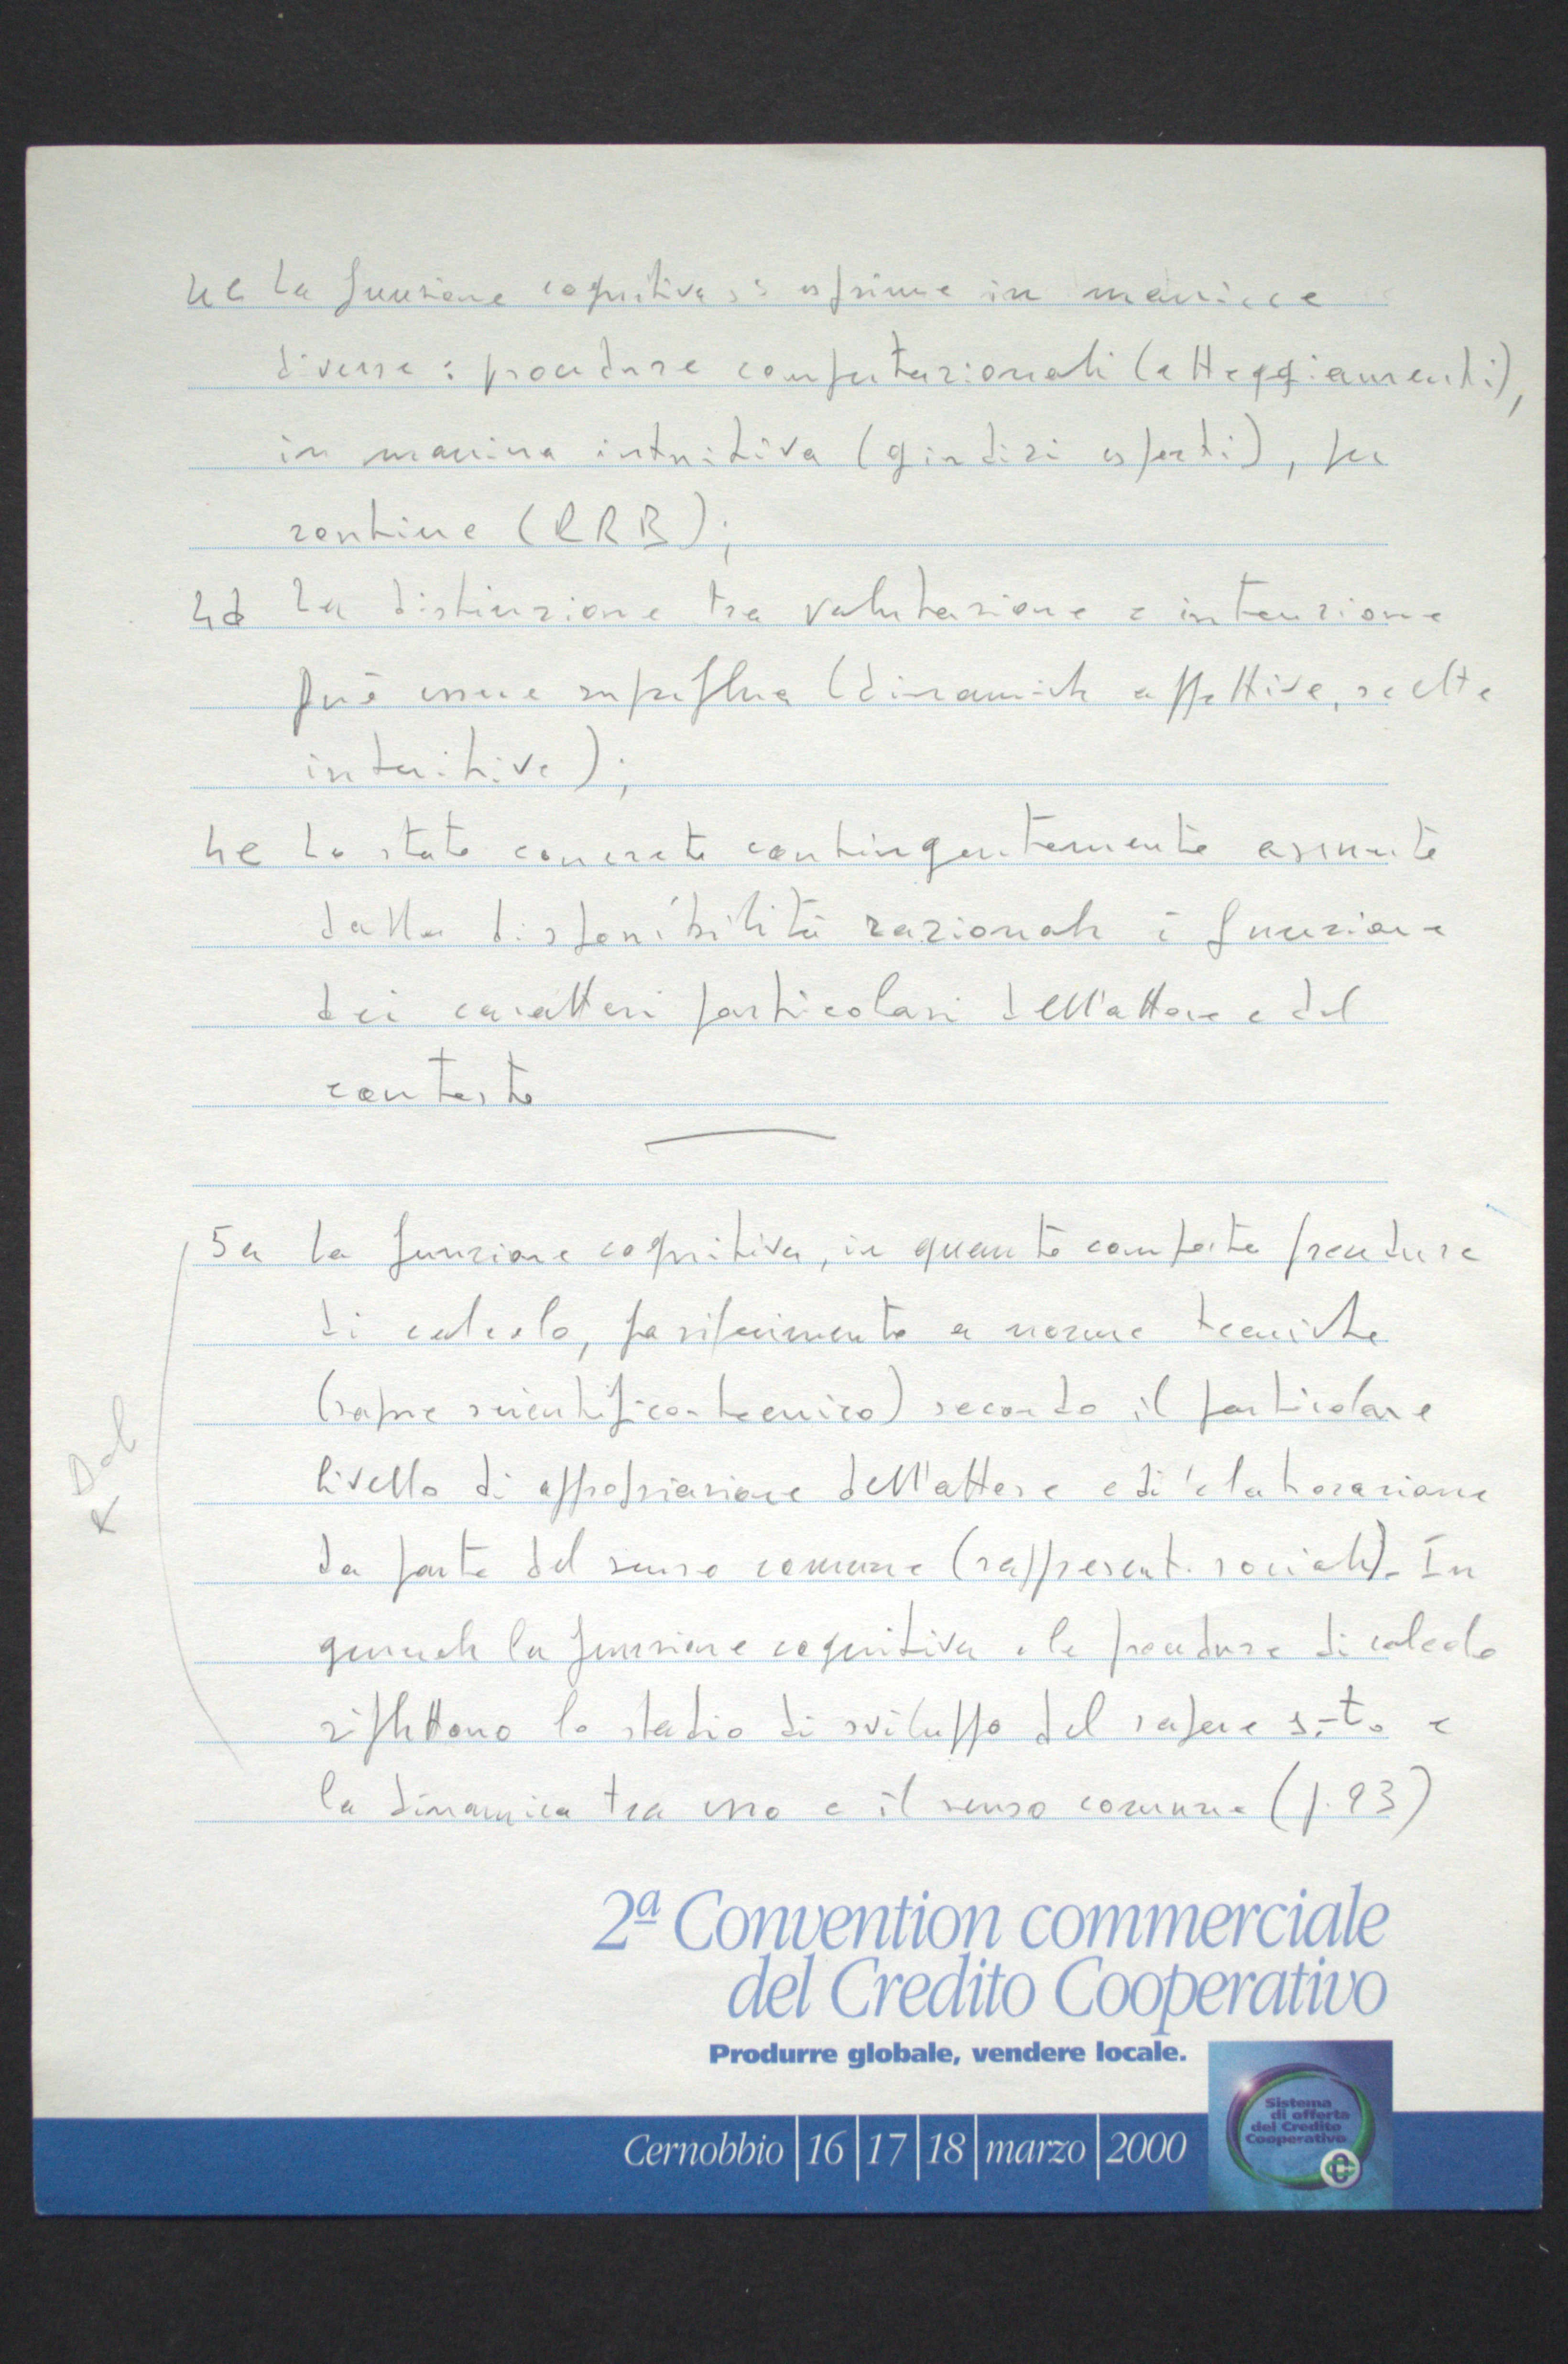 4c La funzione cognitiva si esprime in maniere
diverse: procedure computazionali (atteggiamenti),
in maniera intuitiva (giudizi esperti), per
routine (RRB);
4d La distinzione tra valutazione e intenzione
può essere superflua (dinamiche affettive, scelte
intuitive);
4e Lo stato concreto contingentemente assunto
dalla disponibilità razionale è funzione
dei caratteri particolari dell'attore e del
contesto
5a La funzione cognitiva, in quanto comporta procedure
di calcolo, fa riferimento a norme tecniche
(sapere scientifico-tecnico) secondo il particolare
livello di appropriazione dell'attore e di elaborazione
da parte del senso comune (rappresent. sociali). In
generale la funzione cognitiva e le procedure di calcolo
riflettono lo stadio di sviluppo del sapere s.-t. e
la dinamica tra esso e il senso comune (p. 93)
2ª Convention commerciale
del Credito Cooperativo
Produrre globale, vendere locale.
Cernobbio | 16 | 17 | 18 | marzo | 2000
Sistema
di offerta
del Credito
Cooperativo